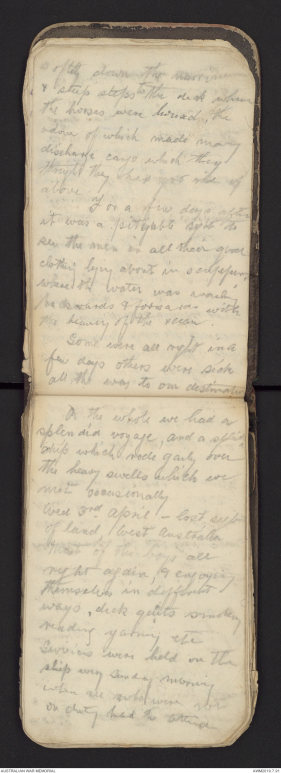 softly down the narrow
& steep steps to the deck where
the horses were housed, the
odour of which made many
discharge cargo which they
thought they had got rid of
above.
For a few days after
it was a pityable sight to
see the men in all their good
clothes lying about in scuppers,
where the water was
backwards & forwards with
the heaving of the ocean.
Some were all right in a
few days others were sick
all the way to our destination
On the whole we had a
splendid voyage, and a splendid
ship which rode gaily over
the heavy swells which we
met occasionally
Wed 3rd April – lost sight
of land, West Australia
Most of the boys all
right again, & enjoying
themselves in different
ways, deck quoits smoking
reading yarning etc
Services were held on the
ship every Sunday morning
when all who were not
on duty had to attend
AUSTRALIAN WAR MEMORIAL
AWM2016.7.21